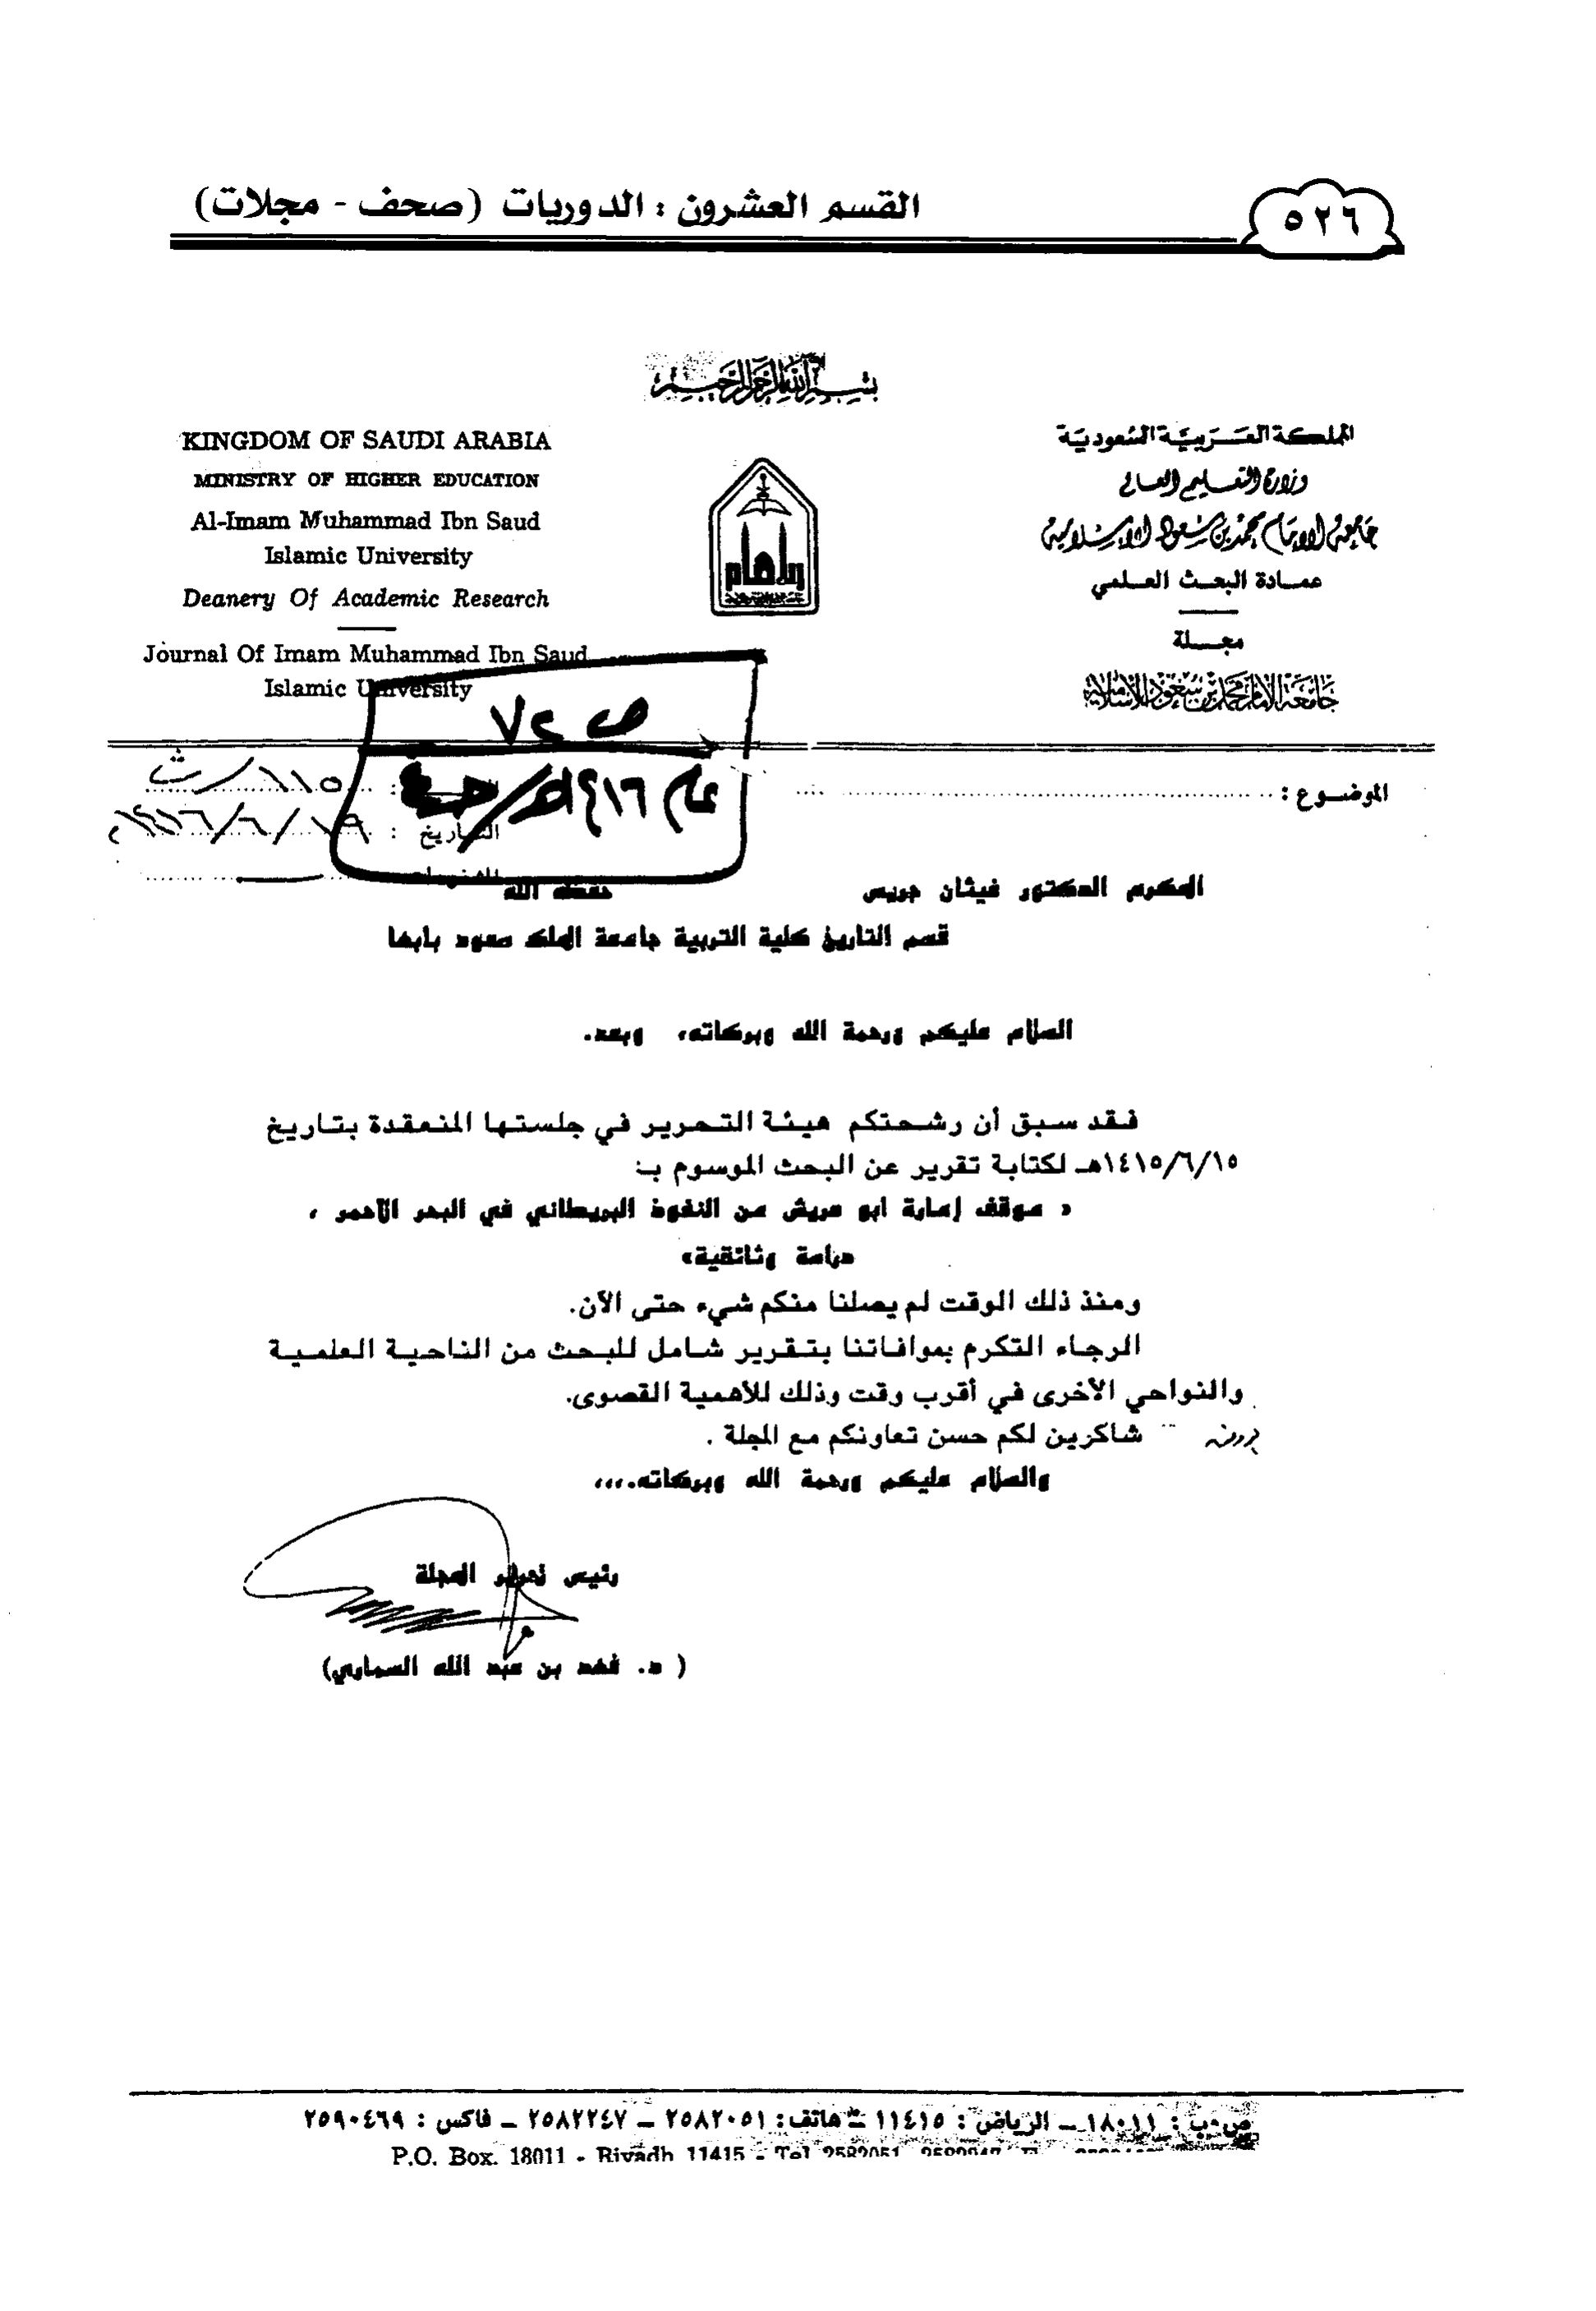 القسم العشرون : الدوريات (صحف - مجلات)
٥٢٦
بسم الله الرحمن الرحيم
المملكة العربية السعودية
وزارة التعليم العالي
جامعة الإمام محمد بن سعود الإسلامية
عمادة البحث العلمي
مجلة
جامعة الإمام محمد بن سعود الإسلامية
KINGDOM OF SAUDI ARABIA
MINISTRY OF HIGHER EDUCATION
Al-Imam Muhammad Ibn Saud
Islamic University
Deanery Of Academic Research
Journal Of Imam Muhammad Ibn Saud
Islamic University
الموضوع :
التاريخ :
المكرم الدكتور غيثان جريس حفظه الله
قسم التاريخ كلية التربية جامعة الملك سعود بأبها
السلام عليكم ورحمة الله وبركاته، وبعد.
فقد سبق أن رشحتكم هيئة التحرير في جلستها المنعقدة بتاريخ
١٤١٥/٦/١٥هـ لكتابة تقرير عن البحث الموسوم بـ:
« موقف إمارة أبو عريش من النفوذ البريطاني في البحر الأحمر ،
دراسة وثائقية»
ومنذ ذلك الوقت لم يصلنا منكم شيء حتى الآن.
الرجاء التكرم بموافاتنا بتقرير شامل للبحث من الناحية العلمية
والنواحي الأخرى في أقرب وقت وذلك للأهمية القصوى.
شاكرين لكم حسن تعاونكم مع المجلة .
والسلام عليكم ورحمة الله وبركاته،،،،
رئيس تحرير المجلة
( د. فهد بن عبد الله السماري)
ص.ب : ١٨٠١١ ــ الرياض : ١١٤١٥ ــ هاتف : ٢٥٨٢٠٥١ ــ ٢٥٨٢٢٤٧ ــ فاكس : ٢٥٩٠٤٦٩
P.O. Box. 18011 - Riyadh 11415 - Tel 2582051